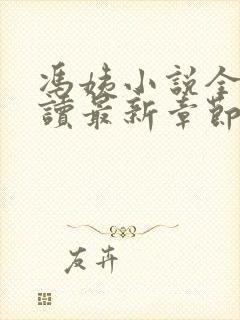 馮姨小說全
讀最新章節
友卉